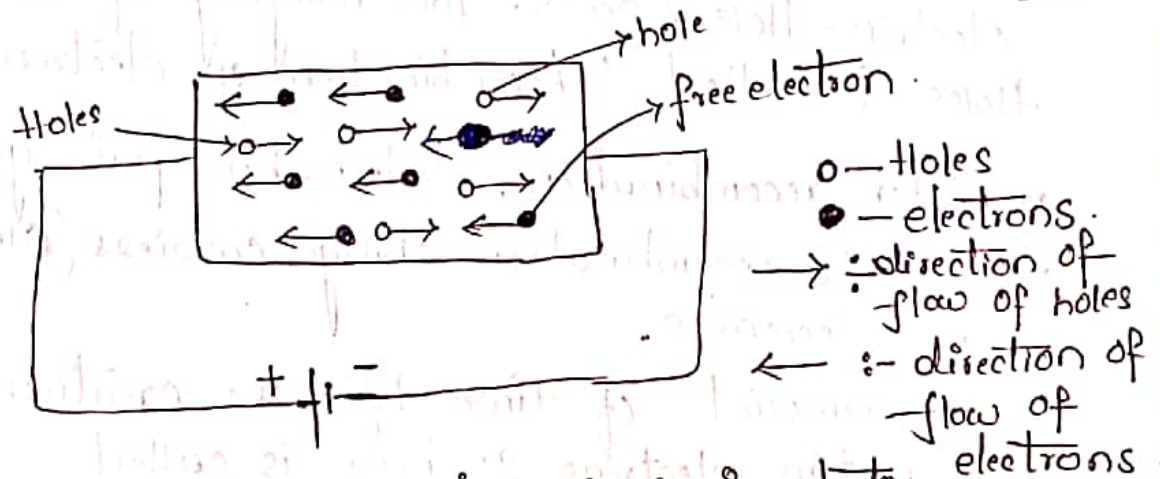 hole
free electron.
Holes
o — Holes
● — electrons.
→ :- direction of
flow of holes
+ -
← :- direction of
flow of
electrons